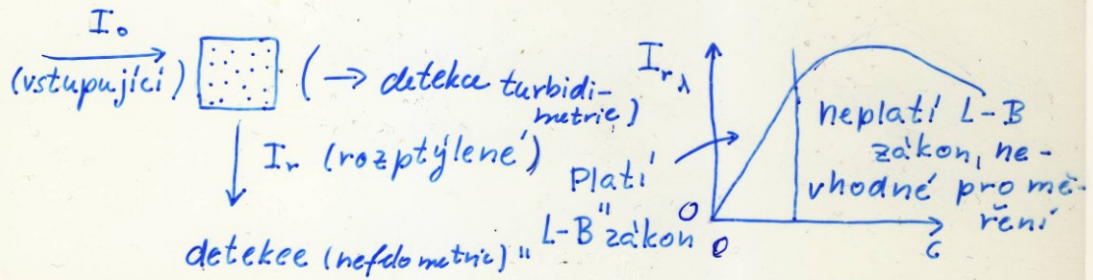 I₀
(vstupující) (→ detekce turbidi-
metrie)
Iᵣ (rozptýlené)
detekce (nefelometrie)
Iᵣ
platí
"L-B" zákon
neplatí L-B
zákon, ne-
vhodné pro mě-
ření
0
0
c